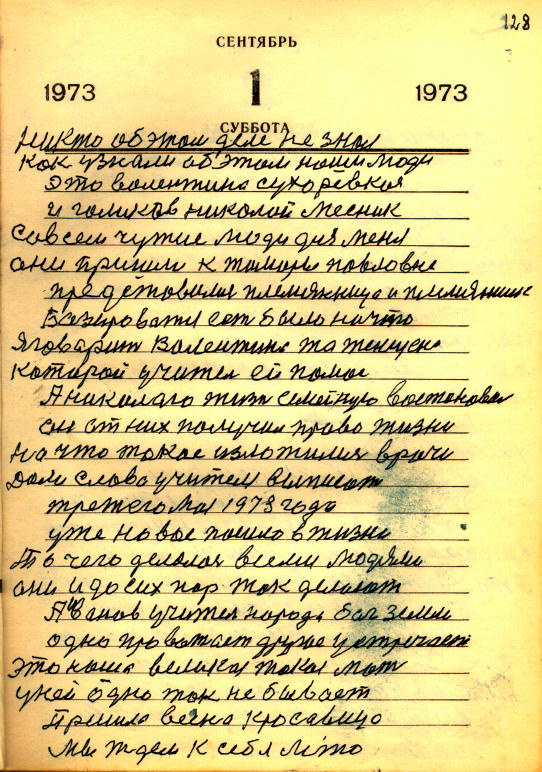 128
СЕНТЯБРЬ
1973 1 1973
СУББОТА
Никто об этом деле не знал
Как узнали об этом наши люди
Это валентина сухоревская
и голиков николай месник
Совсем чужие люди для меня
они пришли к тамаре павловне
представилися племянница и племянник
было на что
Я говарит Валентина та женщена
Которой учител ей помог
А николаю жизн семейную востоновил
он от них получил право жизни
на что такое изложилися врачи
Дали слова учителю выписат
третего мая 1973 года
уже новое пошло в жизни
То чего делалоя всеми людями
они и до сих пор так делают
А Иванов учител народа бог земли
одно провожает другое устречает
Это наша великая такая мат
у ней одно так не бывает
Пришла весна Красавица
Мы ждем к себя лето